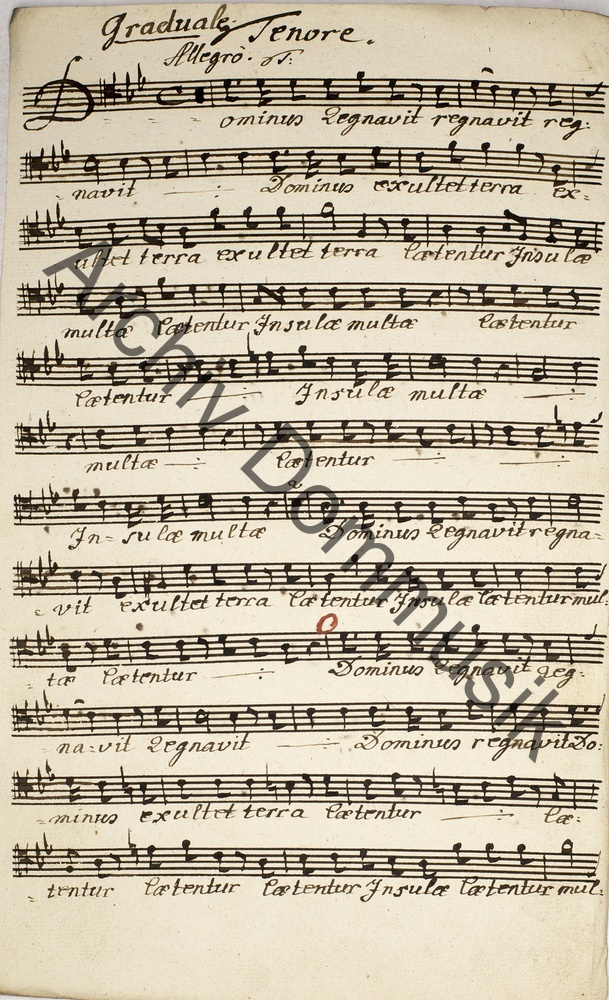 Graduale Tenore.
Allegro.
Dominus Regnavit regnavit reg:
navit Dominus exultet terra ex=
ultet terra exultet terra lætentur Insulæ
multæ lætentur Insulæ multæ lætentur
lætentur Insulæ multæ
multæ lætentur
In= sulæ multæ Dominus Regnavit regna=
vit exultet terra lætentur Insulæ lætentur mul:
tæ lætentur Dominus Regnavit Reg:
na=vit Regnavit Dominus regnavit Do:
minus exultet terra lætentur læ:
tentur lætentur lætentur Insulæ lætentur mul:
Archiv Dommusik